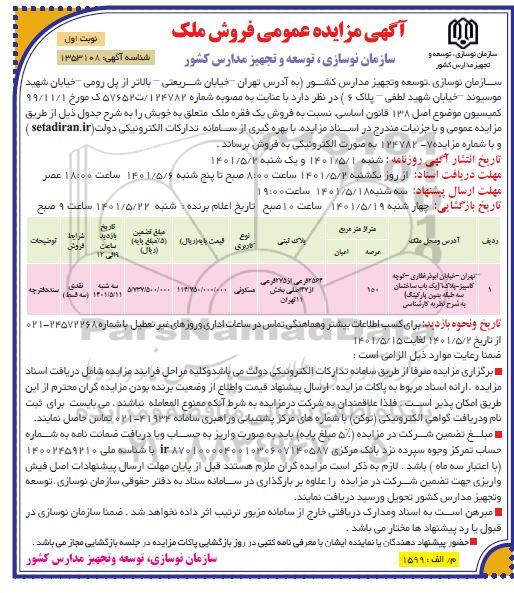 آگهی مزایده عمومی فروش ملک
نوبت اول
سازمان نوسازی، توسعه و تجهیز مدارس کشور
شناسه آگهی: ۱۳۵۳۱۰۸
سازمان نوسازی، توسعه و
تجهیز مدارس کشور
سازمان نوسازی ،توسعه وتجهیز مدارس کشور (به آدرس تهران –خیابان شریعتی – بالاتر از پل رومی –خیابان شهید
موسیوند –خیابان شهید لطفی – پلاک ۶ ) در نظر دارد با عنایت به مصوبه شماره ۱۲۴۷۸۲/ت۵۷۶۵۲ ک مورخ ۹۹/۱۱/۱
کمیسیون موضوع اصل ۱۳۸ قانون اساسی، نسبت به فروش یک فقره ملک متعلق به خویش را به شرح جدول ذیل از طریق
مزایده عمومی و با جزئیات مندرج در اسناد مزایده، با بهره گیری از سامانه تدارکات الکترونیکی دولت( setadiran.ir )
و با شماره مزایده۷- ۱۲۴۷۸۲ به صورت الکترونیکی به فروش برساند .
تاریخ انتشار آگهی روزنامه : شنبه ۱۴۰۱/۵/۱ و یک شنبه ۱۴۰۱/۵/۲
مهلت دریافت اسناد: از روز یکشنبه ۱۴۰۱/۵/۲ ساعت ۸:۰۰ صبح تا پنج شنبه ۱۴۰۱/۵/۶ ساعت ۱۸:۰۰ عصر
مهلت ارسال پیشنهاد: سه شنبه ۱۴۰۱/۵/۱۸ ساعت ۱۹:۰۰
تاریخ بازگشایی: چهار شنبه ۱۴۰۱/۵/۱۹ ساعت ۱۰ صبح تاریخ اعلام برنده : شنبه ۱۴۰۱/۵/۲۲ ساعت ۹ صبح
ردیف آدرس ومحل ملک متراژ متر مربع عرصه اعیان پلاک ثبتی نوع کاربری قیمت پایه(ریال) مبلغ تضمین (۵٪مبلغ پایه) (ریال) تاریخ بازدید ساعت ۹الی ۱۲ شرایط فروش توضیحات
۱ تهران –خیابان ابوذرغفاری –کوچه کامبیز–پلاک۱(یک باب ساختمان سه طبقه بدون پارکینگ) به شرح نظریه کارشناسی ۱۵۰ ۲۵۶۴فرعی از۲۷۵فرعی از۴۷اصلی بخش ۱۱تهران مسکونی ۱۱۴/۷۵۰/۰۰۰/۰۰۰ ۵/۷۳۷/۵۰۰/۰۰۰ سه شنبه ۱۴۰۱/۵/۱۱ نقدی (سه قسط) سنددفترچه
تاریخ ونحوه بازدید: برای کسب اطلاعات بیشتر وهماهنگی تماس در ساعات اداری وروز های غیر تعطیل باشماره ۲۴۵۷۲۲۶۸-۰۲۱
از تاریخ ۱۴۰۱/۵/۲ لغایت۱۴۰۱/۵/۱۵
ضمنا رعایت موارد ذیل الزامی است :
برگزاری مزایده صرفا از طریق سامانه تدارکات الکترونیکی دولت می باشدوکلیه مراحل فرایند مزایده شامل دریافت اسناد
مزایده ،ارائه اسناد مربوط به پاکات مزایده ، ارسال پیشنهاد قیمت واطلاع از وضعیت برنده بودن مزایده گران محترم از این
طریق امکان پذیر است . فلذا علاقمندان به شرکت درمزایده به شرط آنکه ممنوع المعامله نباشند . می بایست برای ثبت
نام ودریافت گواهی الکترونیکی (توکن) با شماره های مرکز پشتیبانی وراهبری سامانه ۴۱۹۳۴-۰۲۱ تماس حاصل نمایند.
مبلغ تضمین شرکت در مزایده (۵٪ مبلغ پایه) باید به صورت واریز به حساب ویا دریافت ضمانت نامه به شماره
حساب تمرکز وجوه سپرده نزد بانک مرکزی
(با اعتبار سه ماه ) باشد . لازم به ذکر است مزایده گران ملزم هستند قبل از پایان مهلت ارسال پیشنهادات اصل فیش
واریزی جهت تضمین شرکت در مزایده را علاوه بر بارگذاری در سامانه ستاد به دفتر حقوقی سازمان نوسازی ،توسعه
وتجهیز مدارس کشور تحویل ورسید دریافت نمایند.
مبرهن است به اسناد ومدارک دریافتی خارج از سامانه مزبور ترتیب اثر داده نخواهد شد . ضمنا سازمان نوسازی در
قبول یا رد پیشنهاد ها مختار می باشد .
حضور پیشنهاد دهندگان یا نماینده ایشان با معرفی نامه کتبی در روز بازگشایی پاکات مزایده در جلسه بازگشایی مجاز می باشد .
سازمان نوسازی، توسعه وتجهیز مدارس کشور
م/ الف : ۱۵۹۹
ParsNamadData